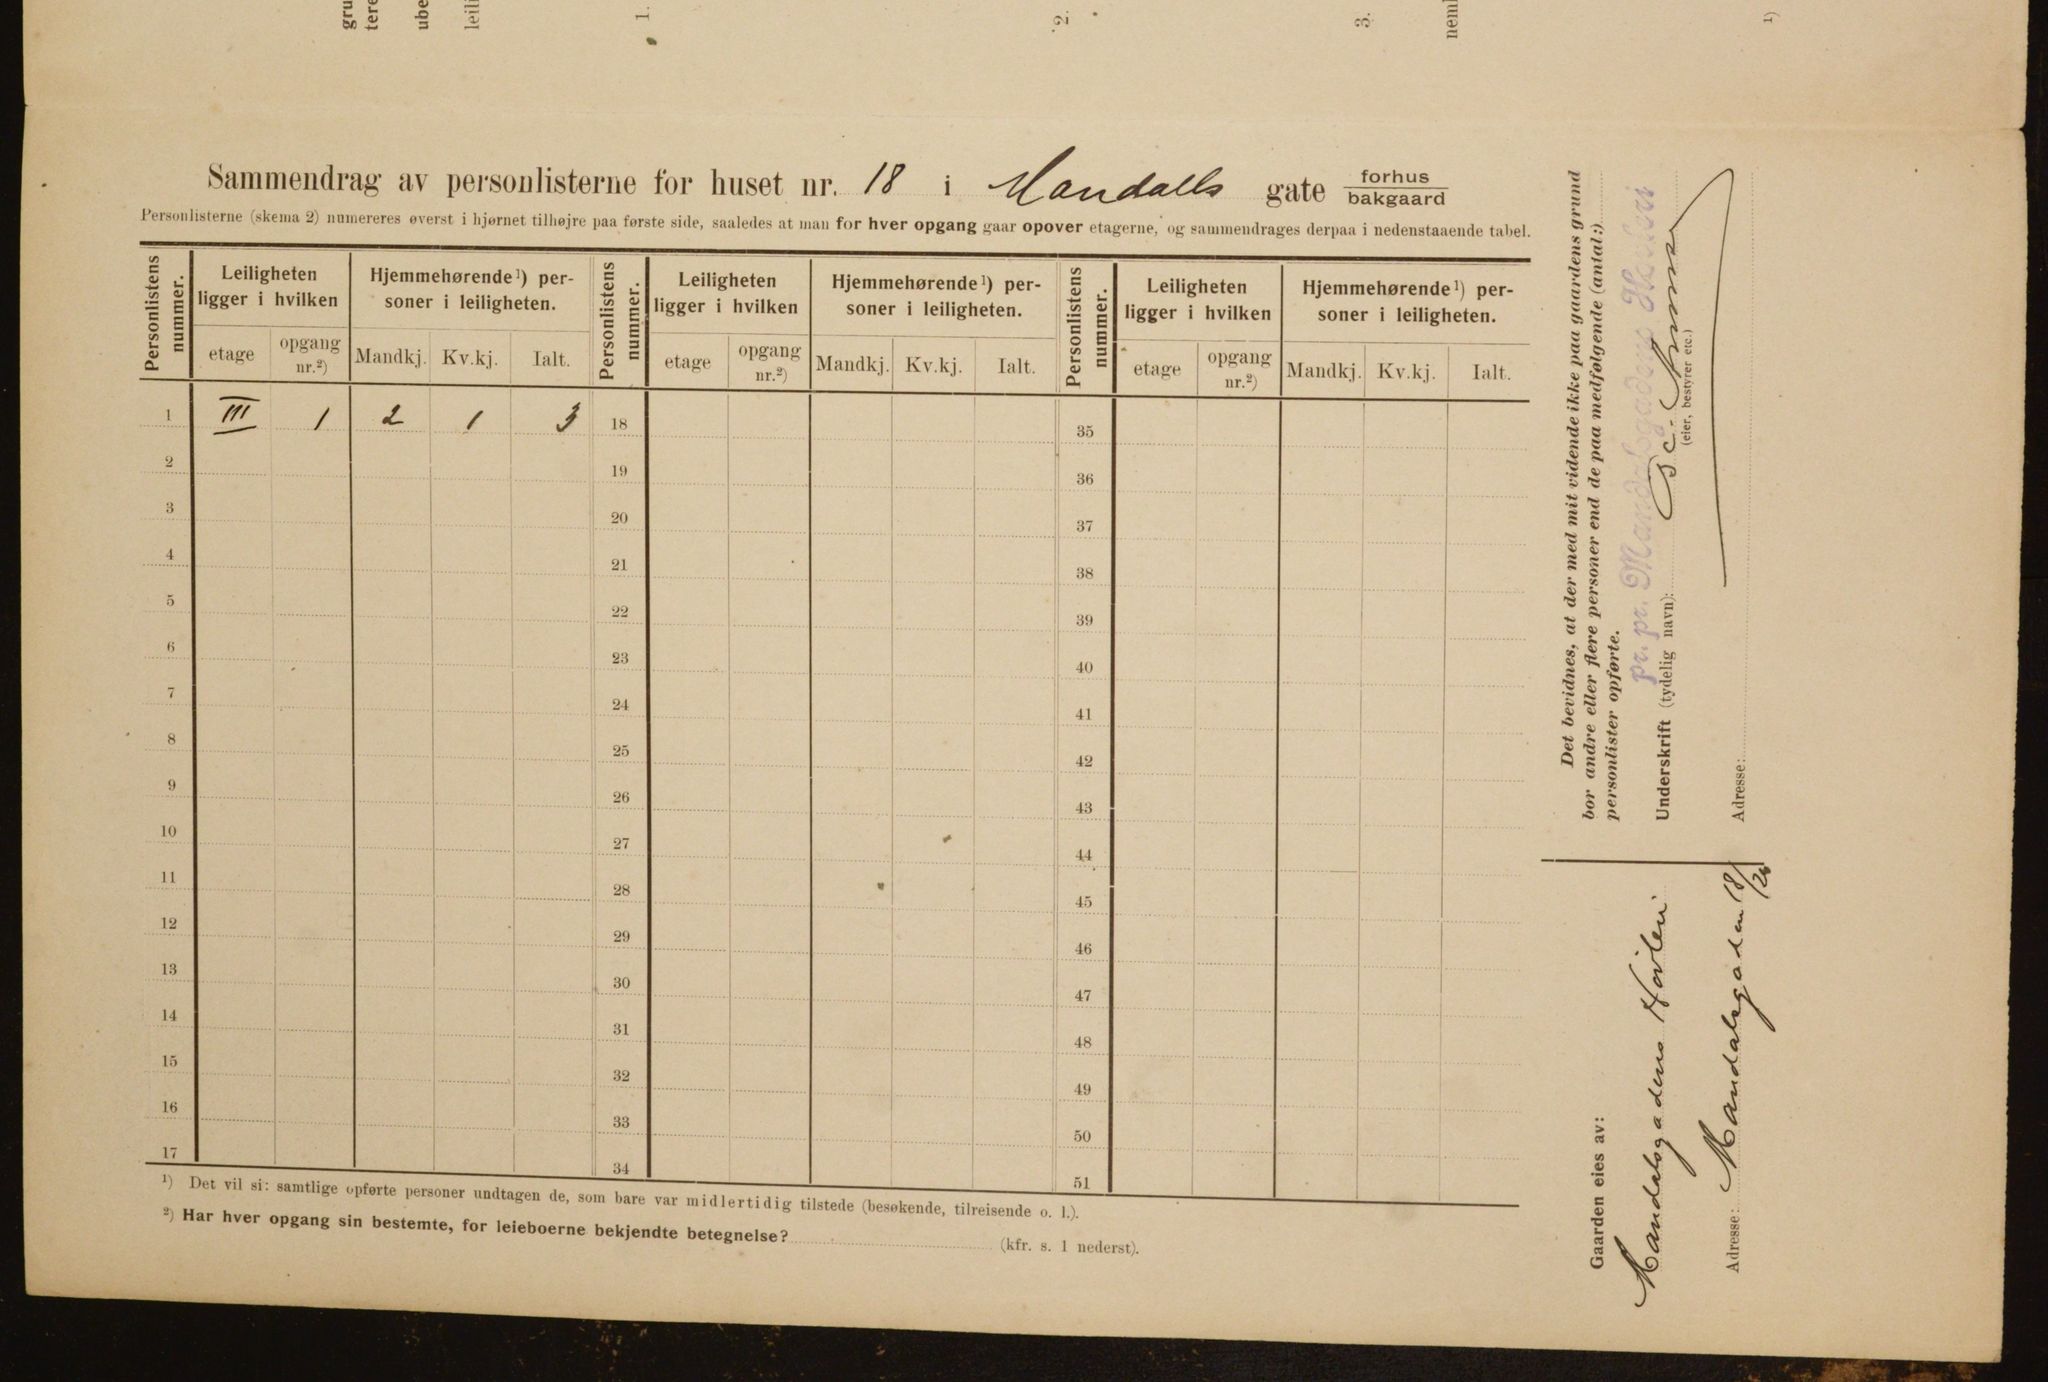 gru
tere
ube
leili
1.
2.
3.
neml
1)
Sammendrag av personlisterne for huset nr. 18 i Mandalls gate forhus
bakgaard
Personlisterne (skema 2) numereres øverst i hjørnet tilhøjre paa første side, saaledes at man for hver opgang gaar opover etagerne, og sammendrages derpaa i nedenstaaende tabel.
Personlistens nummer. Leiligheten ligger i hvilken Hjemmehørende ¹) personer i leiligheten. Personlistens nummer. Leiligheten ligger i hvilken Hjemmehørende ¹) personer i leiligheten. Personlistens nummer. Leiligheten ligger i hvilken Hjemmehørende ¹) personer i leiligheten.
etage opgang nr.²) Mandkj. Kv.kj. Ialt. etage opgang nr.²) Mandkj. Kv.kj. Ialt. etage opgang nr.²) Mandkj. Kv.kj. Ialt.
1 III 1 2 1 3 18 35
2 19 36
3 20 37
4 21 38
5 22 39
6 23 40
7 24 41
8 25 42
9 26 43
10 27 44
11 28 45
12 29 46
13 30 47
14 31 48
15 32 49
16 33 50
17 34 51
¹) Det vil si: samtlige opførte personer undtagen de, som bare var midlertidig tilstede (besøkende, tilreisende o. l.).
²) Har hver opgang sin bestemte, for leieboerne bekjendte betegnelse? (kfr. s. 1 nederst).
Det bevidnes, at der med mit vidende ikke paa gaardens grund
bor andre eller flere personer end de paa medfølgende (antal:)
personlister opførte.
pr. pr. Mandalsgadens
Underskrift (tydelig navn):
(eier, bestyrer etc.)
Adresse:
Gaarden eies av:
Mandalsgadens
Adresse: Mandalsgaden 18/20